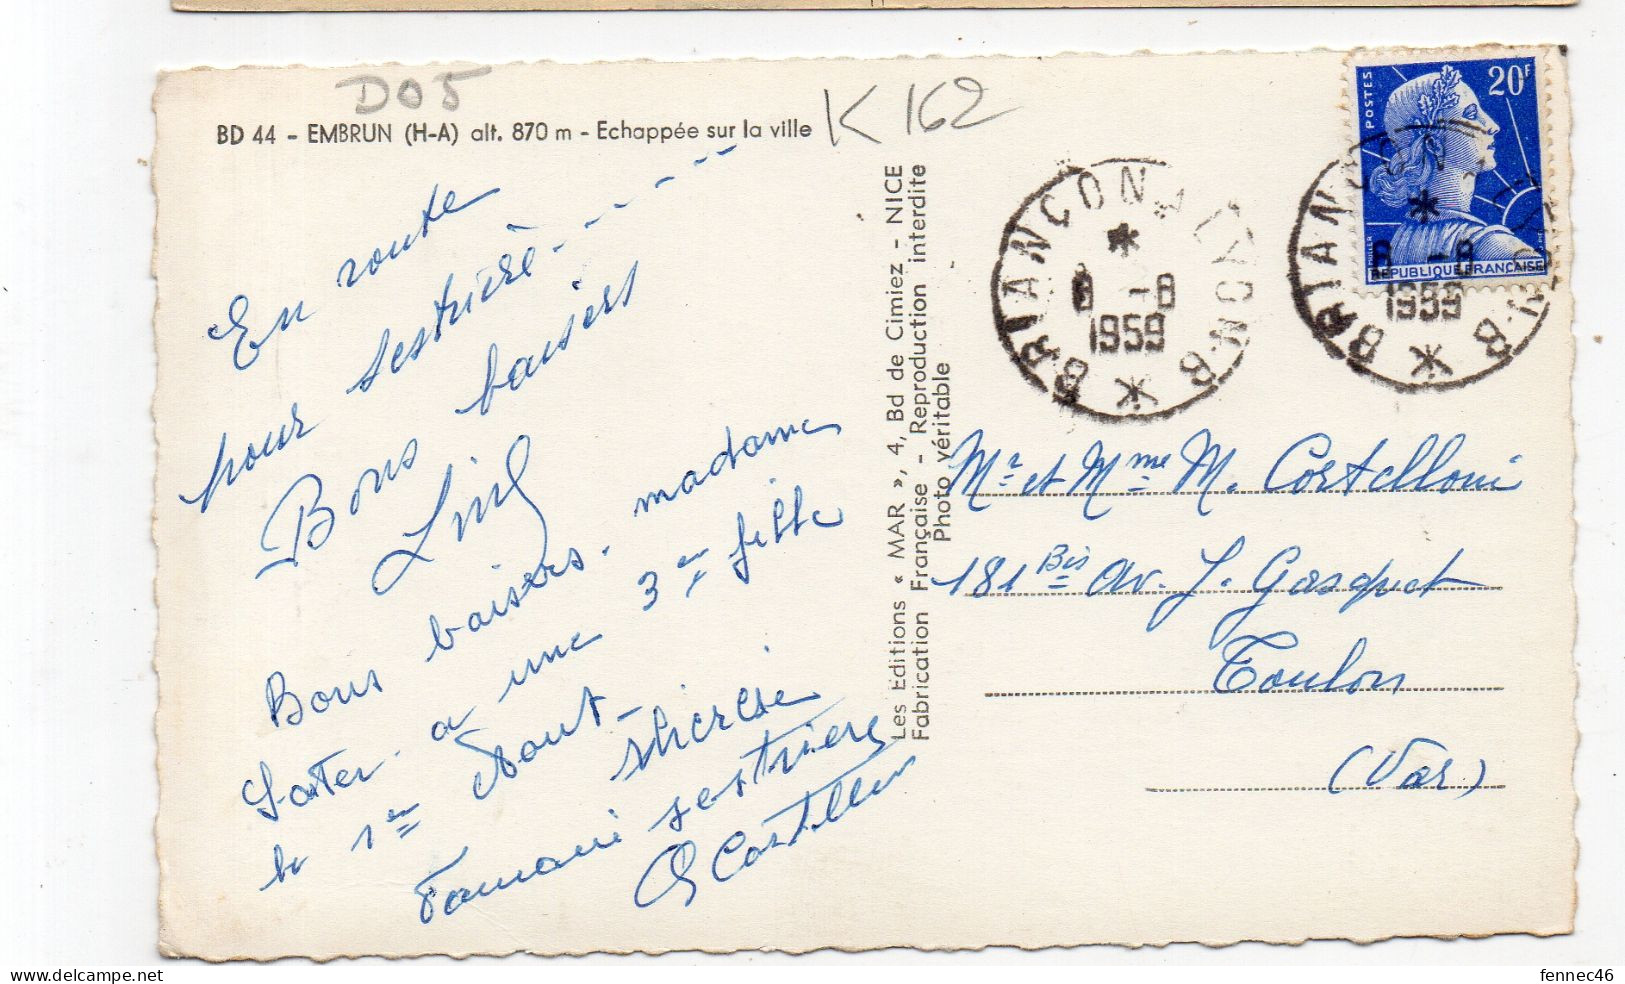 D05
K 162
BD 44 - EMBRUN (H-A) alt. 870 m - Echappée sur la ville
En route
pour sestrière - - - - - -
Bons baisers
Bons baisers. madame
a une 3 en fille
le 1er Aout
sestrières
Les Editions « MAR », 4, Bd de Cimiez - NICE
Fabrication Française - Reproduction interdite
Photo véritable
BRIANCON
8 -8
1959
POSTES
20F
MULLER
REPUBLIQUE FRANÇAISE
BRIANCON
8 -8
1959
Mr et Mme M. Costelloni
181 Bis Av. J. Gasquet
Toulon
(Var)
fennec46